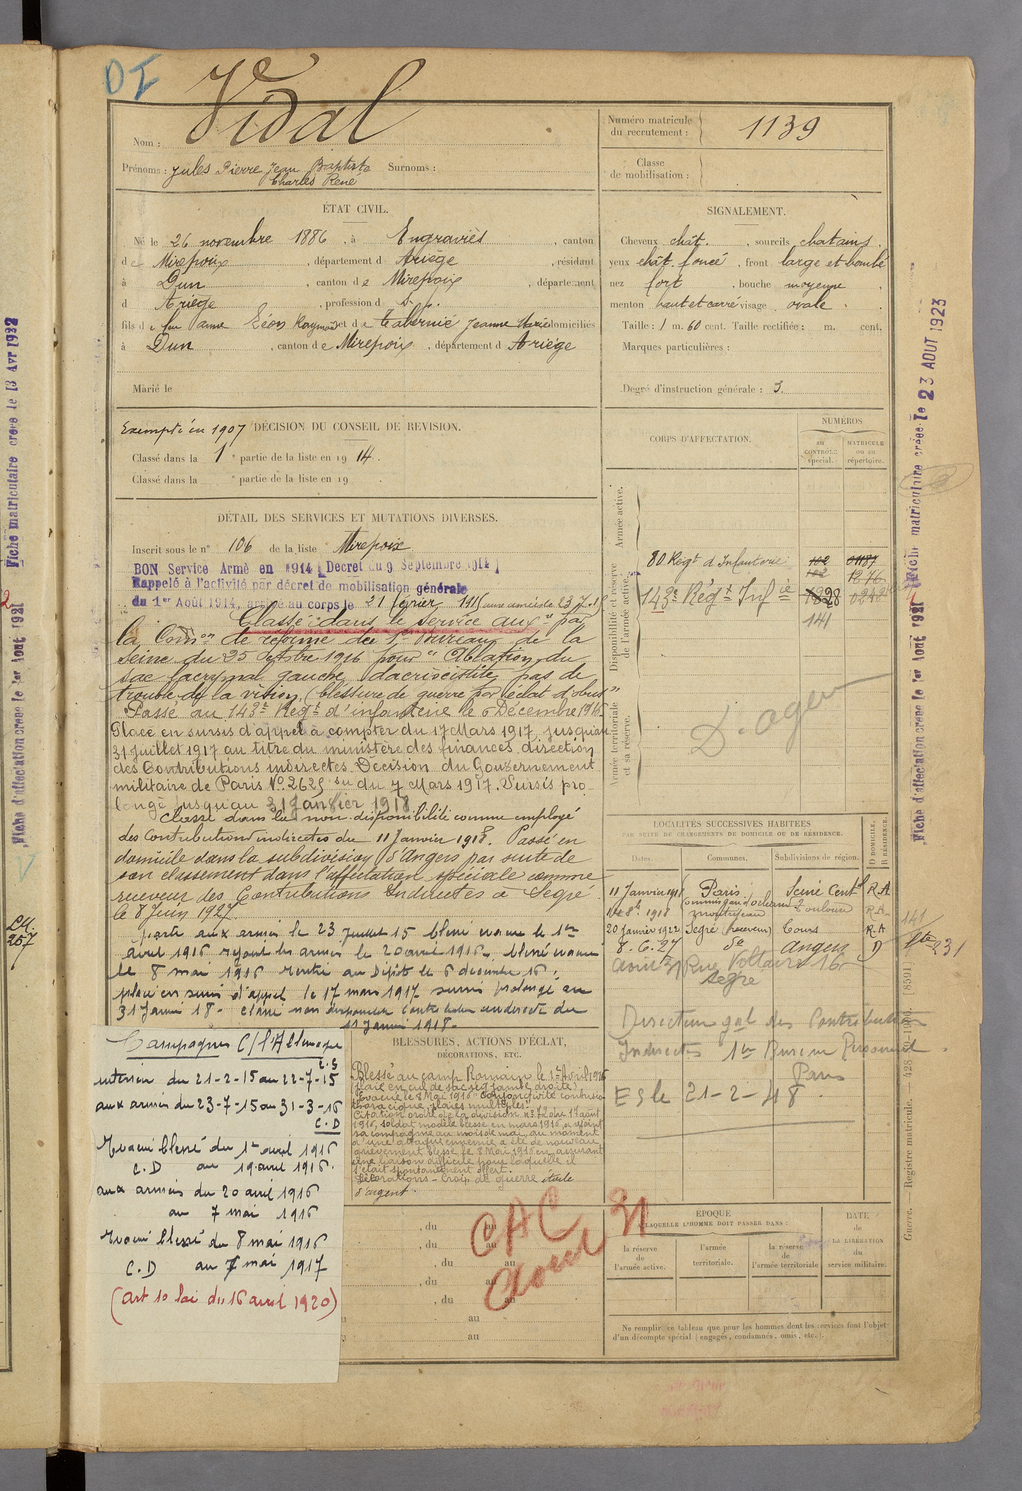 DI
Nom : Vidal
Prénoms : Jules Pierre Jean Baptiste Surnoms :
Charles René
Numéro matricule du recrutement : 1139
Classe de mobilisation :
ÉTAT CIVIL.
Né le 26 novembre 1886, à Engraviès, canton
de Mirepoix, département d Ariège, résidant
à Dun, canton de Mirepoix, département
d Ariège, profession d s. p.
fils de feu Léon Raymond et de Jeanne Marie domiciliés
à Dun, canton de Mirepoix, département d Ariège
Marié le
SIGNALEMENT.
Cheveux chât., sourcils chatains,
yeux chât foncé, front large et bombé
nez fort, bouche moyenne,
menton haut et carré visage ovale.
Taille : 1 m. 60 cent. Taille rectifiée : m. cent.
Marques particulières :
Degré d'instruction générale : 3.
Exempté en 1907 DÉCISION DU CONSEIL DE REVISION.
Classé dans la 1e partie de la liste en 1914.
Classé dans la e partie de la liste en 19 .
CORPS D'AFFECTATION.
NUMÉROS
au CONTRÔLE spécial.
MATRICULE ou au répertoire.
Armée active.
Disponibilité et réserve de l'armée active.
Armée territoriale et sa réserve.
80 Régt d'Infanterie
1276
143e Régt Infie
141
DÉTAIL DES SERVICES ET MUTATIONS DIVERSES.
Inscrit sous le n° 106 de la liste Mirepoix
BON Service Armé en 1914 (Décret du 9 Septembre 1914)
Rappelé à l'activité par décret de mobilisation générale
du 1er Août 1914, arrivé au corps le 21 février 1915 aux armées le 23-7-15
Classé dans le service auxre par
la Comon de réforme de la
Seine du 25 octobre 1916 pour "Ablation du
sac lacrymal gauche, dacriocistite, pas de
trouble de la vision (blessure de guerre par éclat d'obus"
Passé au 143e Régt d'infanterie le 6 Décembre 1916.
Placé en sursis d'appel à compter du 17 Mars 1917 jusqu'au
31 Juillet 1917 au titre du ministère des finances, direction
des Contributions indirectes. Décision du Gouvernement
militaire de Paris No 2625 du 7 Mars 1917. Sursis pro
longé jusqu'au 31 Janvier 1918
Classé dans la non disponibilité comme employé
des Contributions indirectes du 11 Janvier 1918. Passé en
domicile dans la subdivision d'Angers par suite de
son classement dans l'affectation spéciale comme
receveur des Contributions Indirectes à Segré
le 8 Juin 1927.
parti aux armées le 23 Juillet 15 blessé évacué le 1er
avril 1916 rejoint les armées le 20 avril 1916, blessé évacué
le 8 mai 1916 rentré au Dépôt le 6 décembre 16,
placé en sursis d'appel le 17 mars 1917 sursis prolongé au
31 Janvier 18. classé non disponible Contributions indirectes du
11 Janvier 1918.
D. agen
LOCALITÉS SUCCESSIVES HABITÉES
PAR SUITE DE CHANGEMENTS DE DOMICILE OU DE RÉSIDENCE.
Dates. Communes. Subdivisions de région. D DOMICILE. R RÉSIDENCE.
11 Janvier 1918 Paris Seine Centl R.A
1918 Toulouse R.A.
20 Janvier 1922 Segré (receveur) Cours R.A
8.6.27 do Angers D
août 31 Rue Voltaire 16
Segré
Directeur gal des Contributions
Indirectes 1er Bureau Personnel
Paris
ES le 21-2-48
Campagnes C/l'Allemagne
intérieur du 21-2-15 au 22-7-15
aux armées du 23-7-15 au 31-3-16
C.D
Evacué blessé du 1er avril 1916
C.D au 19 avril 1916.
aux armées du 20 avril 1916
au 7 mai 1916
Evacué blessé du 8 mai 1916
C.D au 7 mai 1917
(art 10 loi du 16 avril 1920)
BLESSURES, ACTIONS D'ÉCLAT,
DÉCORATIONS, ETC.
Blessé au camp Romain le 1er Avril 1916
Evacué le 8 Mai 1916 conjonctivite contusion
thoracique plaies multiples
Citation ordre de la division no 72 du 13 août
1916, soldat modèle blessé en mars 1916, a rejoint
sa compagnie au mois de mai, au moment
d'une attaque ennemie a été de nouveau
grièvement blessé le 8 Mai 1916 en assurant
une liaison difficile pour laquelle il
s'était spontanément offert.
Décorations - Croix de guerre étoile
d'argent.
, du au
, du au
, du au
, du au
, du au
au
au
CAC
Août 31
ÉPOQUE
À LAQUELLE L'HOMME DOIT PASSER DANS :
la réserve de l'armée active.
l'armée territoriale.
la réserve de l'armée territoriale
DATE de LA LIBÉRATION du service militaire.
Ne remplir ce tableau que pour les hommes dont les services font l'objet
d'un décompte spécial (engagés, condamnés, omis, etc.).
Fiche matriculaire créée le 13 Avr 1932
Fiche d'affectation créée le 1er Août 1921
257
Fiche matriculaire créée le 23 AOUT 1923
Fiche d'affectation créée le 1er Août 1921
141
231
Guerre. Registre matricule.